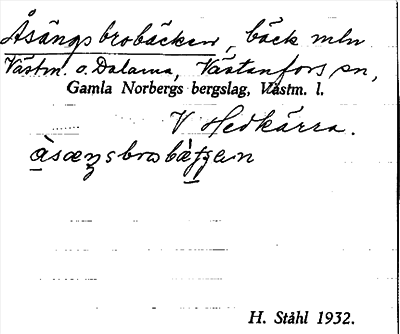 Åsängsbrobäcken, bäck mln
Västm. o. Dalarna, Västanfors sn,
Gamla Norbergs bergslag, Västm. l.
V Hedkärra.
H. Ståhl 1932.